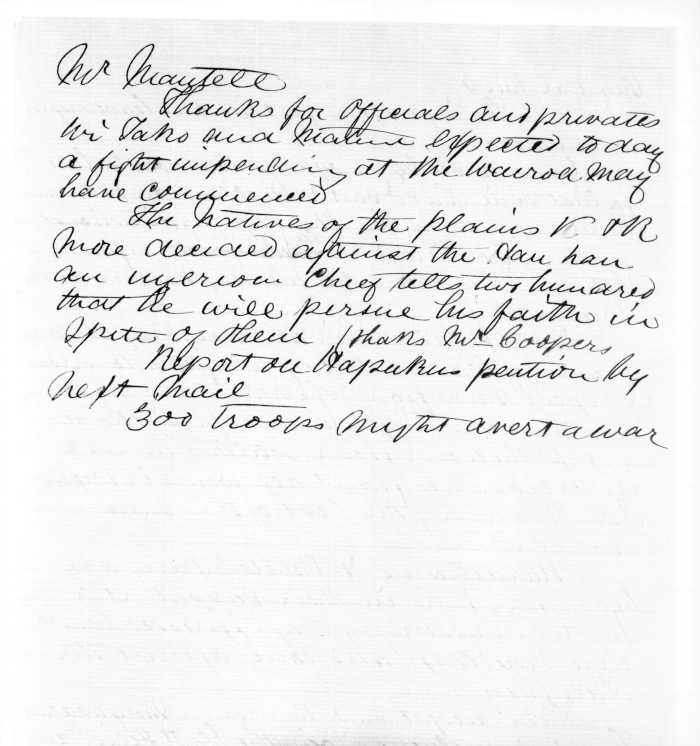 Mr Mantell
Thanks for officials and privates
Wi Tako and Matene expected to day
a fight impending at the Wairoa may
have commenced
The Natives of the plains K OR
more decided against the Hau hau
an Chief tells two hundred
that he will persue his faith in
spite of them (thaks Mr Coopers
Report on Hapukus petition by
next Mail
300 troops might avert a war